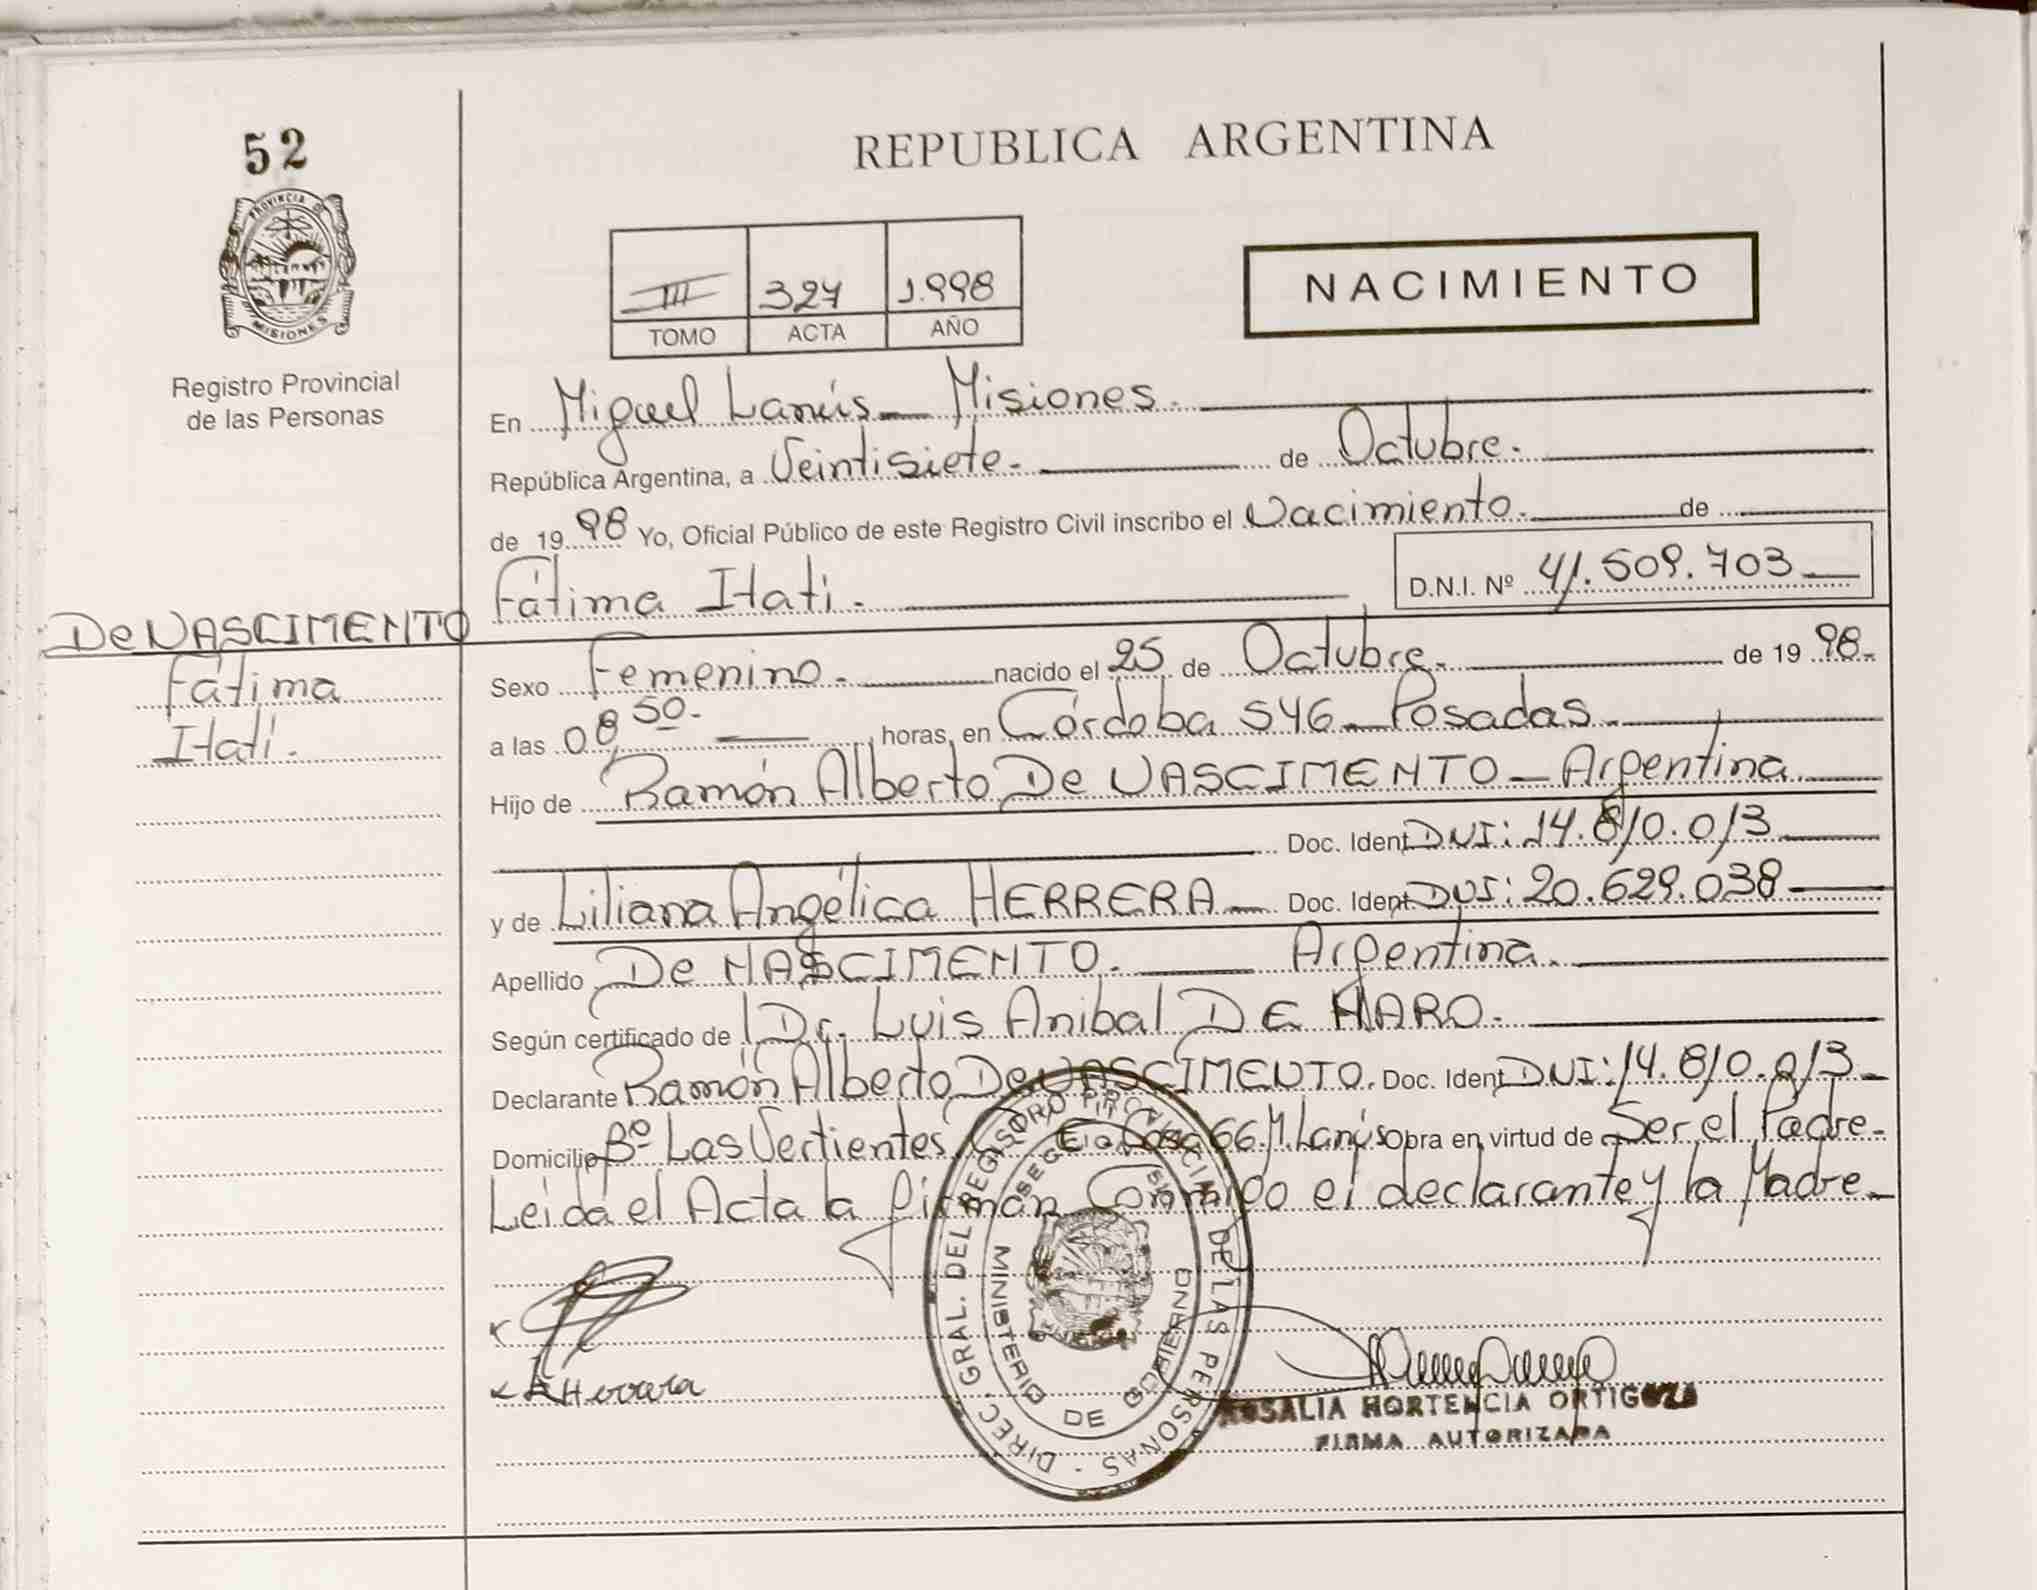 52
REPUBLICA ARGENTINA
PROVINCIA D
MISIONES
III 327 1.998
TOMO ACTA AÑO
NACIMIENTO
Registro Provincial
de las Personas
En Miguel Lanús - Misiones.
República Argentina, a Veintisiete. de Octubre.
de 19 98 Yo, Oficial Público de este Registro Civil inscribo el Nacimiento. de
Fátima Itatí. D.N.I. Nº 41.509.703
De NASCIMENTO
Fátima
Itatí.
Sexo Femenino. nacido el 25 de Octubre. de 19 98.
a las 08,50. horas, en Córdoba 546 - Posadas.
Hijo de Ramón Alberto De NASCIMENTO - Argentina
Doc. Ident. DNI: 14.810.013
y de Liliana Angélica HERRERA - Doc. Ident. DNI: 20.629.038
Apellido De NASCIMENTO. Argentina.
Según certificado de Dr. Luis Anibal DE HARO.
Declarante Ramón Alberto De NASCIMENTO. Doc. Ident. DNI: 14.810.013
Domicilio Bº Las Vertientes Casa 66. M. Lanús obra en virtud de Ser el Padre.
Leida el Acta la firman Conmigo el declarante y la Madre.
DIREC. GRAL. DEL REGISTRO PROVINCIAL DE LAS PERSONAS
MINISTERIO DE GOBIERNO
Herrera
ROSALIA HORTENCIA ORTIGOZA
FIRMA AUTORIZADA